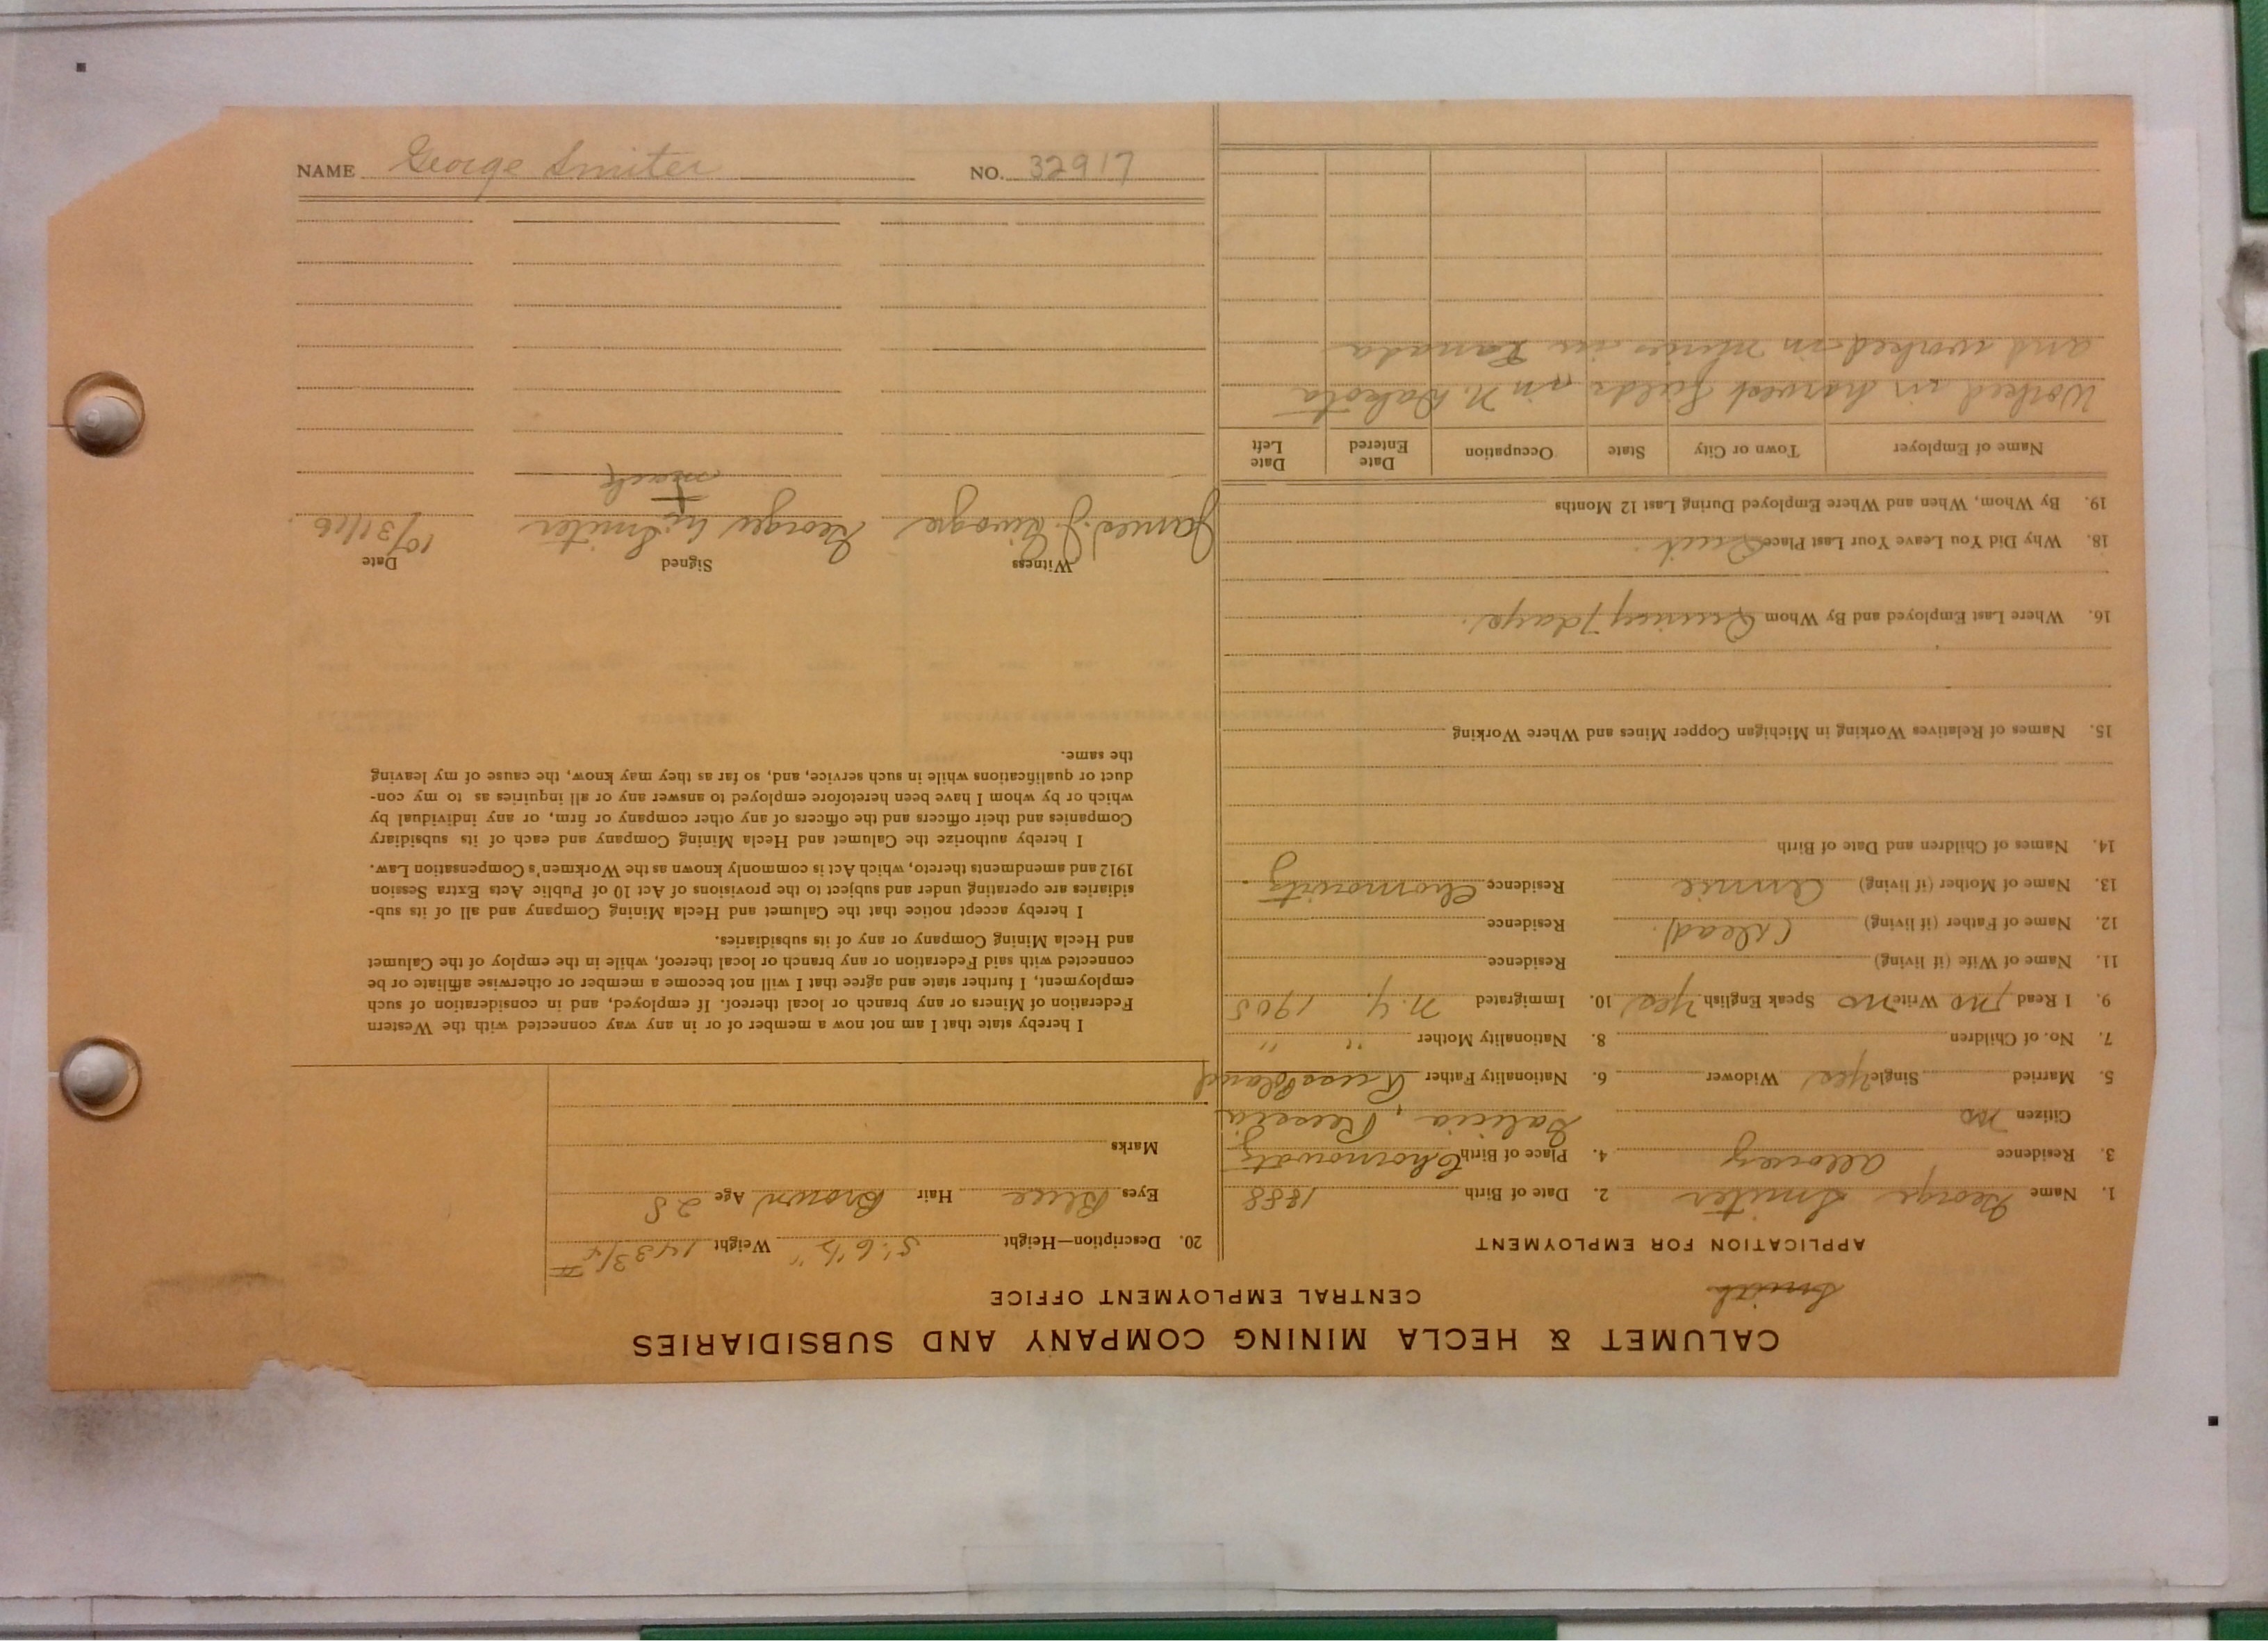 CALUMET & HECLA MINING COMPANY AND SUBSIDIARIES
CENTRAL EMPLOYMENT OFFICE
Smith
APPLICATION FOR EMPLOYMENT
1. Name George Smiter 2. Date of Birth 1888
3. Residence Allouez 4. Place of Birth Chornowatz
Citizen no Galicia, Russia
5. Married Single Yes Widower 6. Nationality Father Russ Poland
7. No. of Children 8. Nationality Mother " "
9. I Read no Write no Speak English Yes 10. Immigrated N.Y. 1905
11. Name of Wife (if living) Residence
12. Name of Father (if living) (dead). Residence
13. Name of Mother (if living) Annie Residence Chornowitz
14. Names of Children and Date of Birth
15. Names of Relatives Working in Michigan Copper Mines and Where Working
16. Where Last Employed and By Whom Quincy 7 days.
18. Why Did You Leave Your Last Place Quit.
19. By Whom, When and Where Employed During Last 12 Months
Name of Employer Town or City State Occupation Date Entered Date Left
Worked in harvest fields in N. Dakota
and worked in mines in Canada
20. Description—Height 5' 6 1/2" Weight 143 3/4 #
Eyes Blue Hair Brown Age 28
Marks
I hereby state that I am not now a member of or in any way connected with the Western
Federation of Miners or any branch or local thereof. If employed, and in consideration of such
employment, I further state and agree that I will not become a member or otherwise affiliate or be
connected with said Federation or any branch or local thereof, while in the employ of the Calumet
and Hecla Mining Company or any of its subsidiaries.
I hereby accept notice that the Calumet and Hecla Mining Company and all of its sub-
sidiaries are operating under and subject to the provisions of Act 10 of Public Acts Extra Session
1912 and amendments thereto, which Act is commonly known as the Workmen's Compensation Law.
I hereby authorize the Calumet and Hecla Mining Company and each of its subsidiary
Companies and their officers and the officers of any other company or firm, or any individual by
which or by whom I have been heretofore employed to answer any or all inquiries as to my con-
duct or qualifications while in such service, and, so far as they may know, the cause of my leaving
the same.
Witness Signed Date
James J. George his Smiter 10/31/16
X
mark
NAME George Smiter NO. 32917